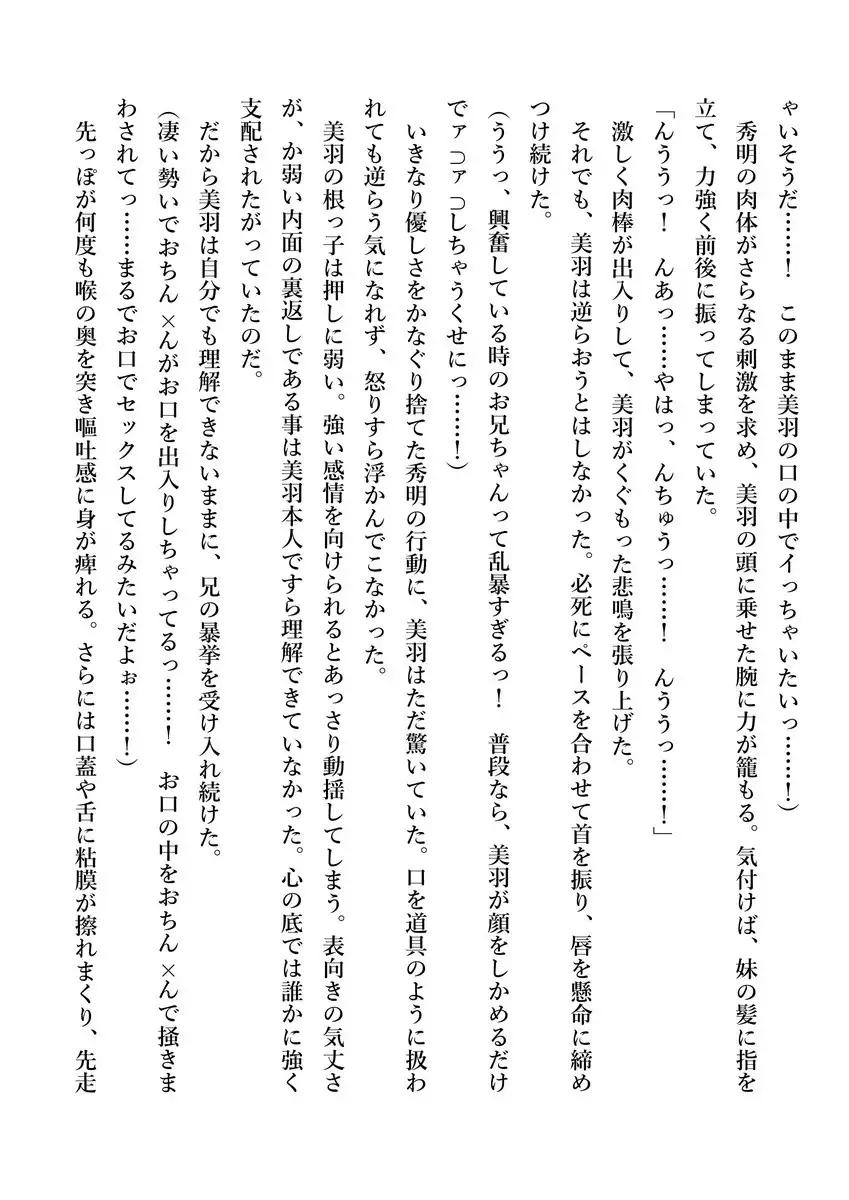 ゃいそうだ……！　このまま美羽の口の中でイっちゃいたいっ……！）
秀明の肉体がさらなる刺激を求め、美羽の頭に乗せた腕に力が籠もる。気付けば、妹の髪に指を
立て、力強く前後に振ってしまっていた。
「んううっ！　んあっ……やはっ、んちゅうっ……！　んううっ……！」
激しく肉棒が出入りして、美羽がくぐもった悲鳴を張り上げた。
それでも、美羽は逆らおうとはしなかった。必死にペースを合わせて首を振り、唇を懸命に締め
つけ続けた。
（ううっ、興奮している時のお兄ちゃんって乱暴すぎるっ！　普段なら、美羽が顔をしかめるだけ
でァつァつしちゃうくせにっ……！）
いきなり優しさをかなぐり捨てた秀明の行動に、美羽はただ驚いていた。口を道具のように扱わ
れても逆らう気になれず、怒りすら浮かんでこなかった。
美羽の根っ子は押しに弱い。強い感情を向けられるとあっさり動揺してしまう。表向きの気丈さ
が、か弱い内面の裏返しである事は美羽本人ですら理解できていなかった。心の底では誰かに強く
支配されたがっていたのだ。
だから美羽は自分でも理解できないままに、兄の暴挙を受け入れ続けた。
（凄い勢いでおちん×んがお口を出入りしちゃってるっ……！　お口の中をおちん×んで掻きま
わされてっ……まるでお口でセックスしてるみたいだよぉ……！）
先っぽが何度も喉の奥を突き嘔吐感に身が痺れる。さらには口蓋や舌に粘膜が擦れまくり、先走